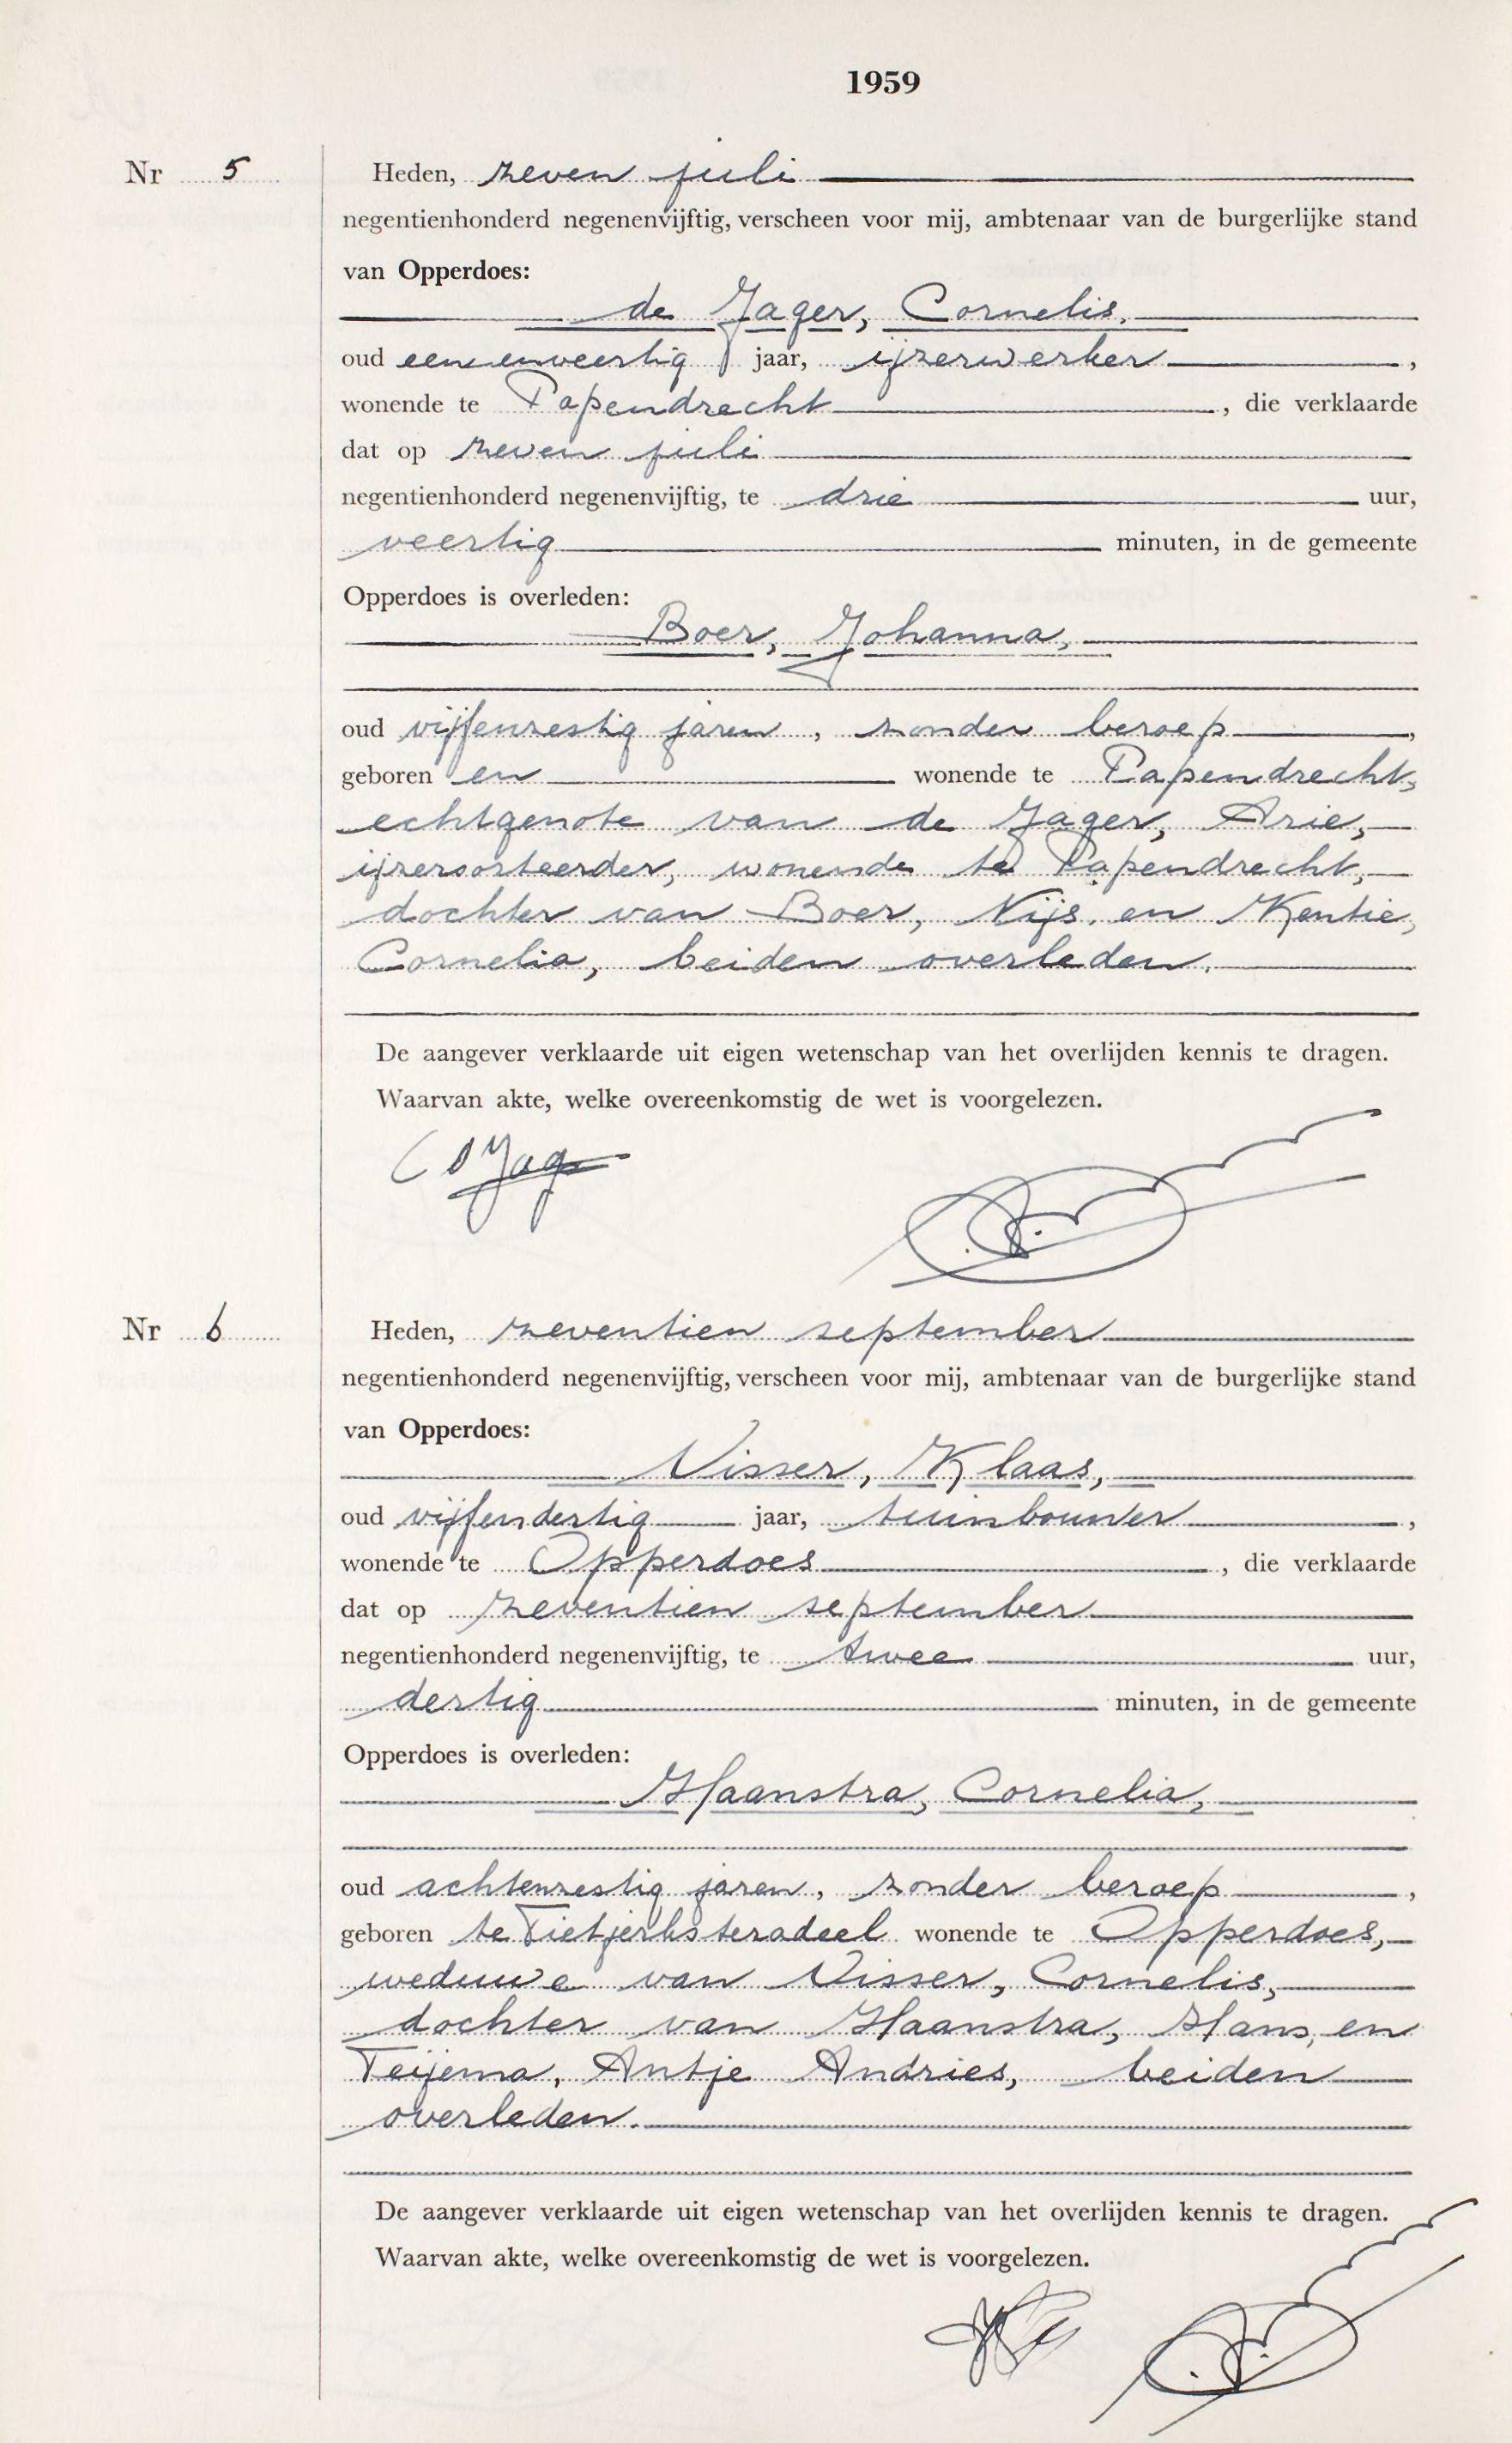 1959
Nr 5
Heden, zeven juli
negentienhonderd negenenvijftig, verscheen voor mij, ambtenaar van de burgerlijke stand
van Opperdoes:
de Jager, Cornelis,
oud eenenveertig jaar, ijzerwerker,
wonende te Papendrecht, die verklaarde
dat op zeven juli
negentienhonderd negenenvijftig, te drie uur,
veertig minuten, in de gemeente
Opperdoes is overleden:
Boer, Johanna,
oud vijfenzestig jaren, zonder beroep,
geboren en wonende te Papendrecht,
echtgenote van de Jager, Arie,
ijzersorteerder, wonende te Papendrecht,
dochter van Boer, Nijs, en Kentie,
Cornelia, beiden overleden.
De aangever verklaarde uit eigen wetenschap van het overlijden kennis te dragen.
Waarvan akte, welke overeenkomstig de wet is voorgelezen.
Nr 6
Heden, zeventien september
negentienhonderd negenenvijftig, verscheen voor mij, ambtenaar van de burgerlijke stand
van Opperdoes:
Visser, Klaas,
oud vijfendertig jaar, tuinbouwer,
wonende te Opperdoes, die verklaarde
dat op zeventien september
negentienhonderd negenenvijftig, te twee uur,
dertig minuten, in de gemeente
Opperdoes is overleden:
Haanstra, Cornelia,
oud achtenzestig jaren, zonder beroep,
geboren te Tietjerksteradeel wonende te Opperdoes,
weduwe van Visser, Cornelis,
dochter van Haanstra, Hans, en
Teijema, Antje Andries, beiden
overleden.
De aangever verklaarde uit eigen wetenschap van het overlijden kennis te dragen.
Waarvan akte, welke overeenkomstig de wet is voorgelezen.